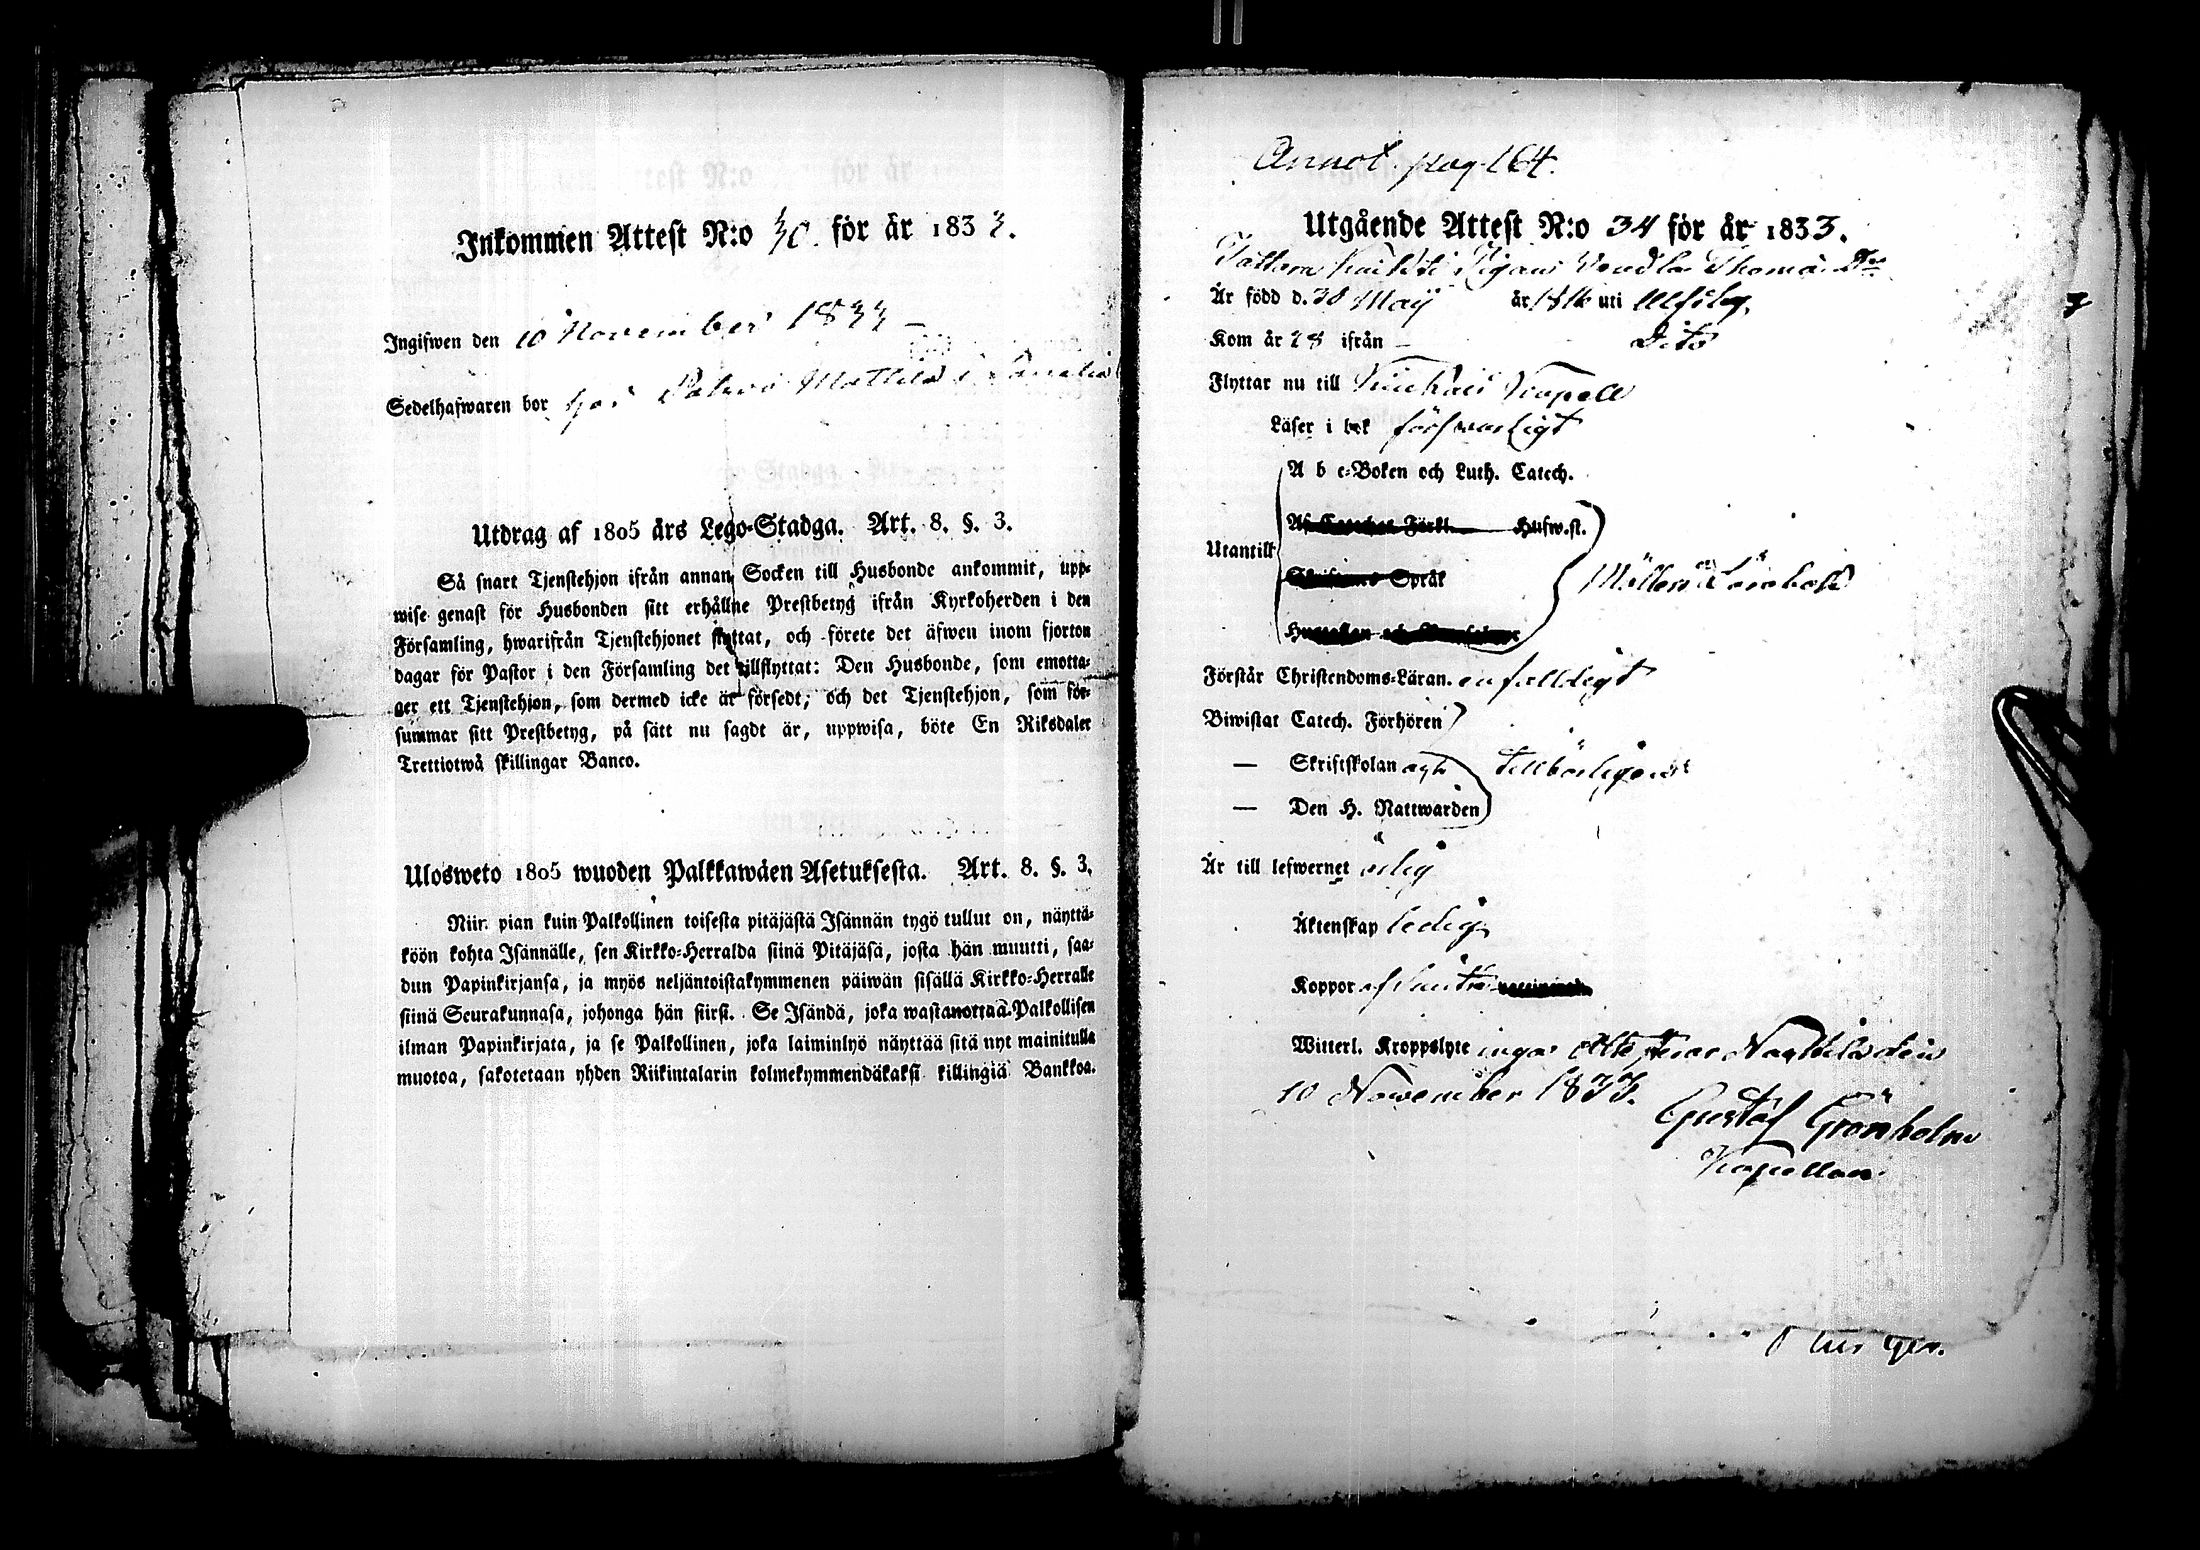 Inkommen Attest N:o 30. för år 1833.
Ingifwen den 10 November 1833 –
Sedelhafwaren bor hos Mattila
Utdrag af 1805 års Lego-Stadga. Art. 8. §. 3.
Så snart Tjenstehjon ifrån annan Socken till Husbonde ankommit, upp-
wise genast för Husbonden sitt erhållne Prestbetyg ifrån Kyrkoherden i den
Församling, hwarifrån Tjenstehjonet flyttat, och förete det äfwen inom fjorton
dagar för Pastor i den Församling det tillflyttat: Den Husbonde, som emotta-
ger ett Tjenstehjon, som dermed icke är försedt, och det Tjenstehjon, som för-
summar sitt Prestbetyg, på sätt nu sagdt är, uppwisa, böte En Riksdaler
Trettiotwå skillingar Banco.
Ulosweto 1805 wuoden Palkkawäen Asetuksesta. Art. 8. §. 3.
Niin pian kuin Palkollinen toisesta pitäjästä Isännän tygö tullut on, näyttä-
köön kohta Isännälle, sen Kirkko-Herralda siinä Pitäjäsä, josta hän muutti, saa-
dun Papinkirjansa, ja myös neljäntoistakymmenen päiwän sisällä Kirkko-Herralle
siinä Seurakunnasa, johonga hän siirsi. Se Isändä, joka wastanottaa Palkollisen
ilman Papinkirjata, ja se Palkollinen, joka laiminlyö näyttää sitä nyt mainitulla
muotoa, sakotetaan yhden Riikintalarin kolmekymmendäkaksi killingiä Bankkoa.
Annot. pag. 164.
Utgående Attest N:o 34 för år 1833.
Pigan Vendla Thomæ Dr
Är född d. 30 Maij år 1816 uti Ulfsby,
Kom år 28 ifrån – Dito
Flyttar nu till Kapell
Läser i bok förswarligt
A b c-Boken och Luth. Catech.
Utantill
Af Catechet Förkl. Husw.st.
Skriftens Språk
Möllers Lärobok
Förstår Christendoms-Läran. enfalldigt
Biwistat Catech. Förhören
— Skriftskolan och tillbörligen
— Den H. Nattwarden
Är till lefwernet ärlig
Äktenskap ledig
Koppor
Witterl. Kroppslyte inga. Attesterar den
10 November 1833.
Gustaf Grönholm
Kapellan